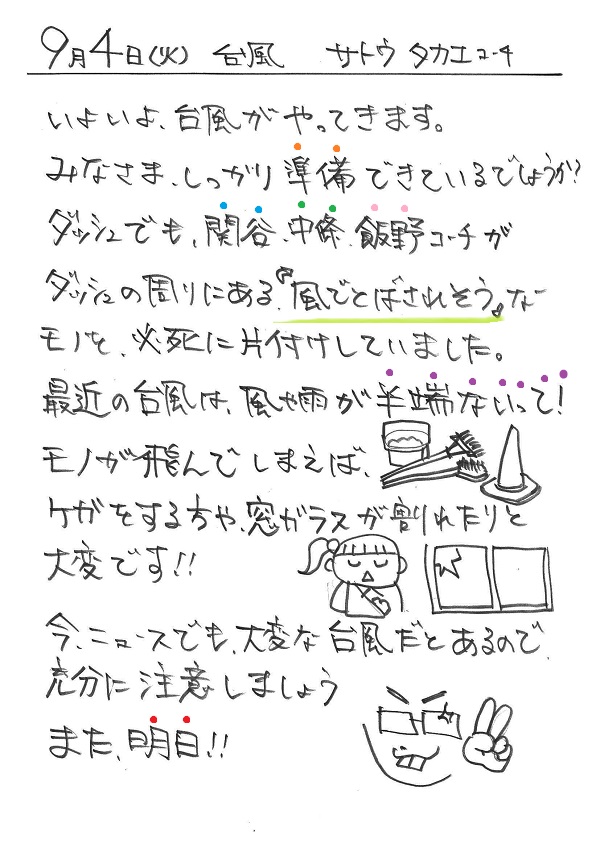 9月4日(火) 台風 サトウ タカエコーチ
いよいよ、台風がやってきます。
みなさま、しっかり準備できているでしょうか?
ダッシュでも、関谷、中條、飯野コーチが
ダッシュの周りにある、『風でとばされそう』な
モノを、必死に片付けしていました。
最近の台風は、風や雨が半端ないって!
モノが飛んでしまえば、
ケガをする方や、窓ガラスが割れたりと
大変です!!
今、ニュースでも、大変な台風だとあるので、
充分に注意しましょう
また、明日!!